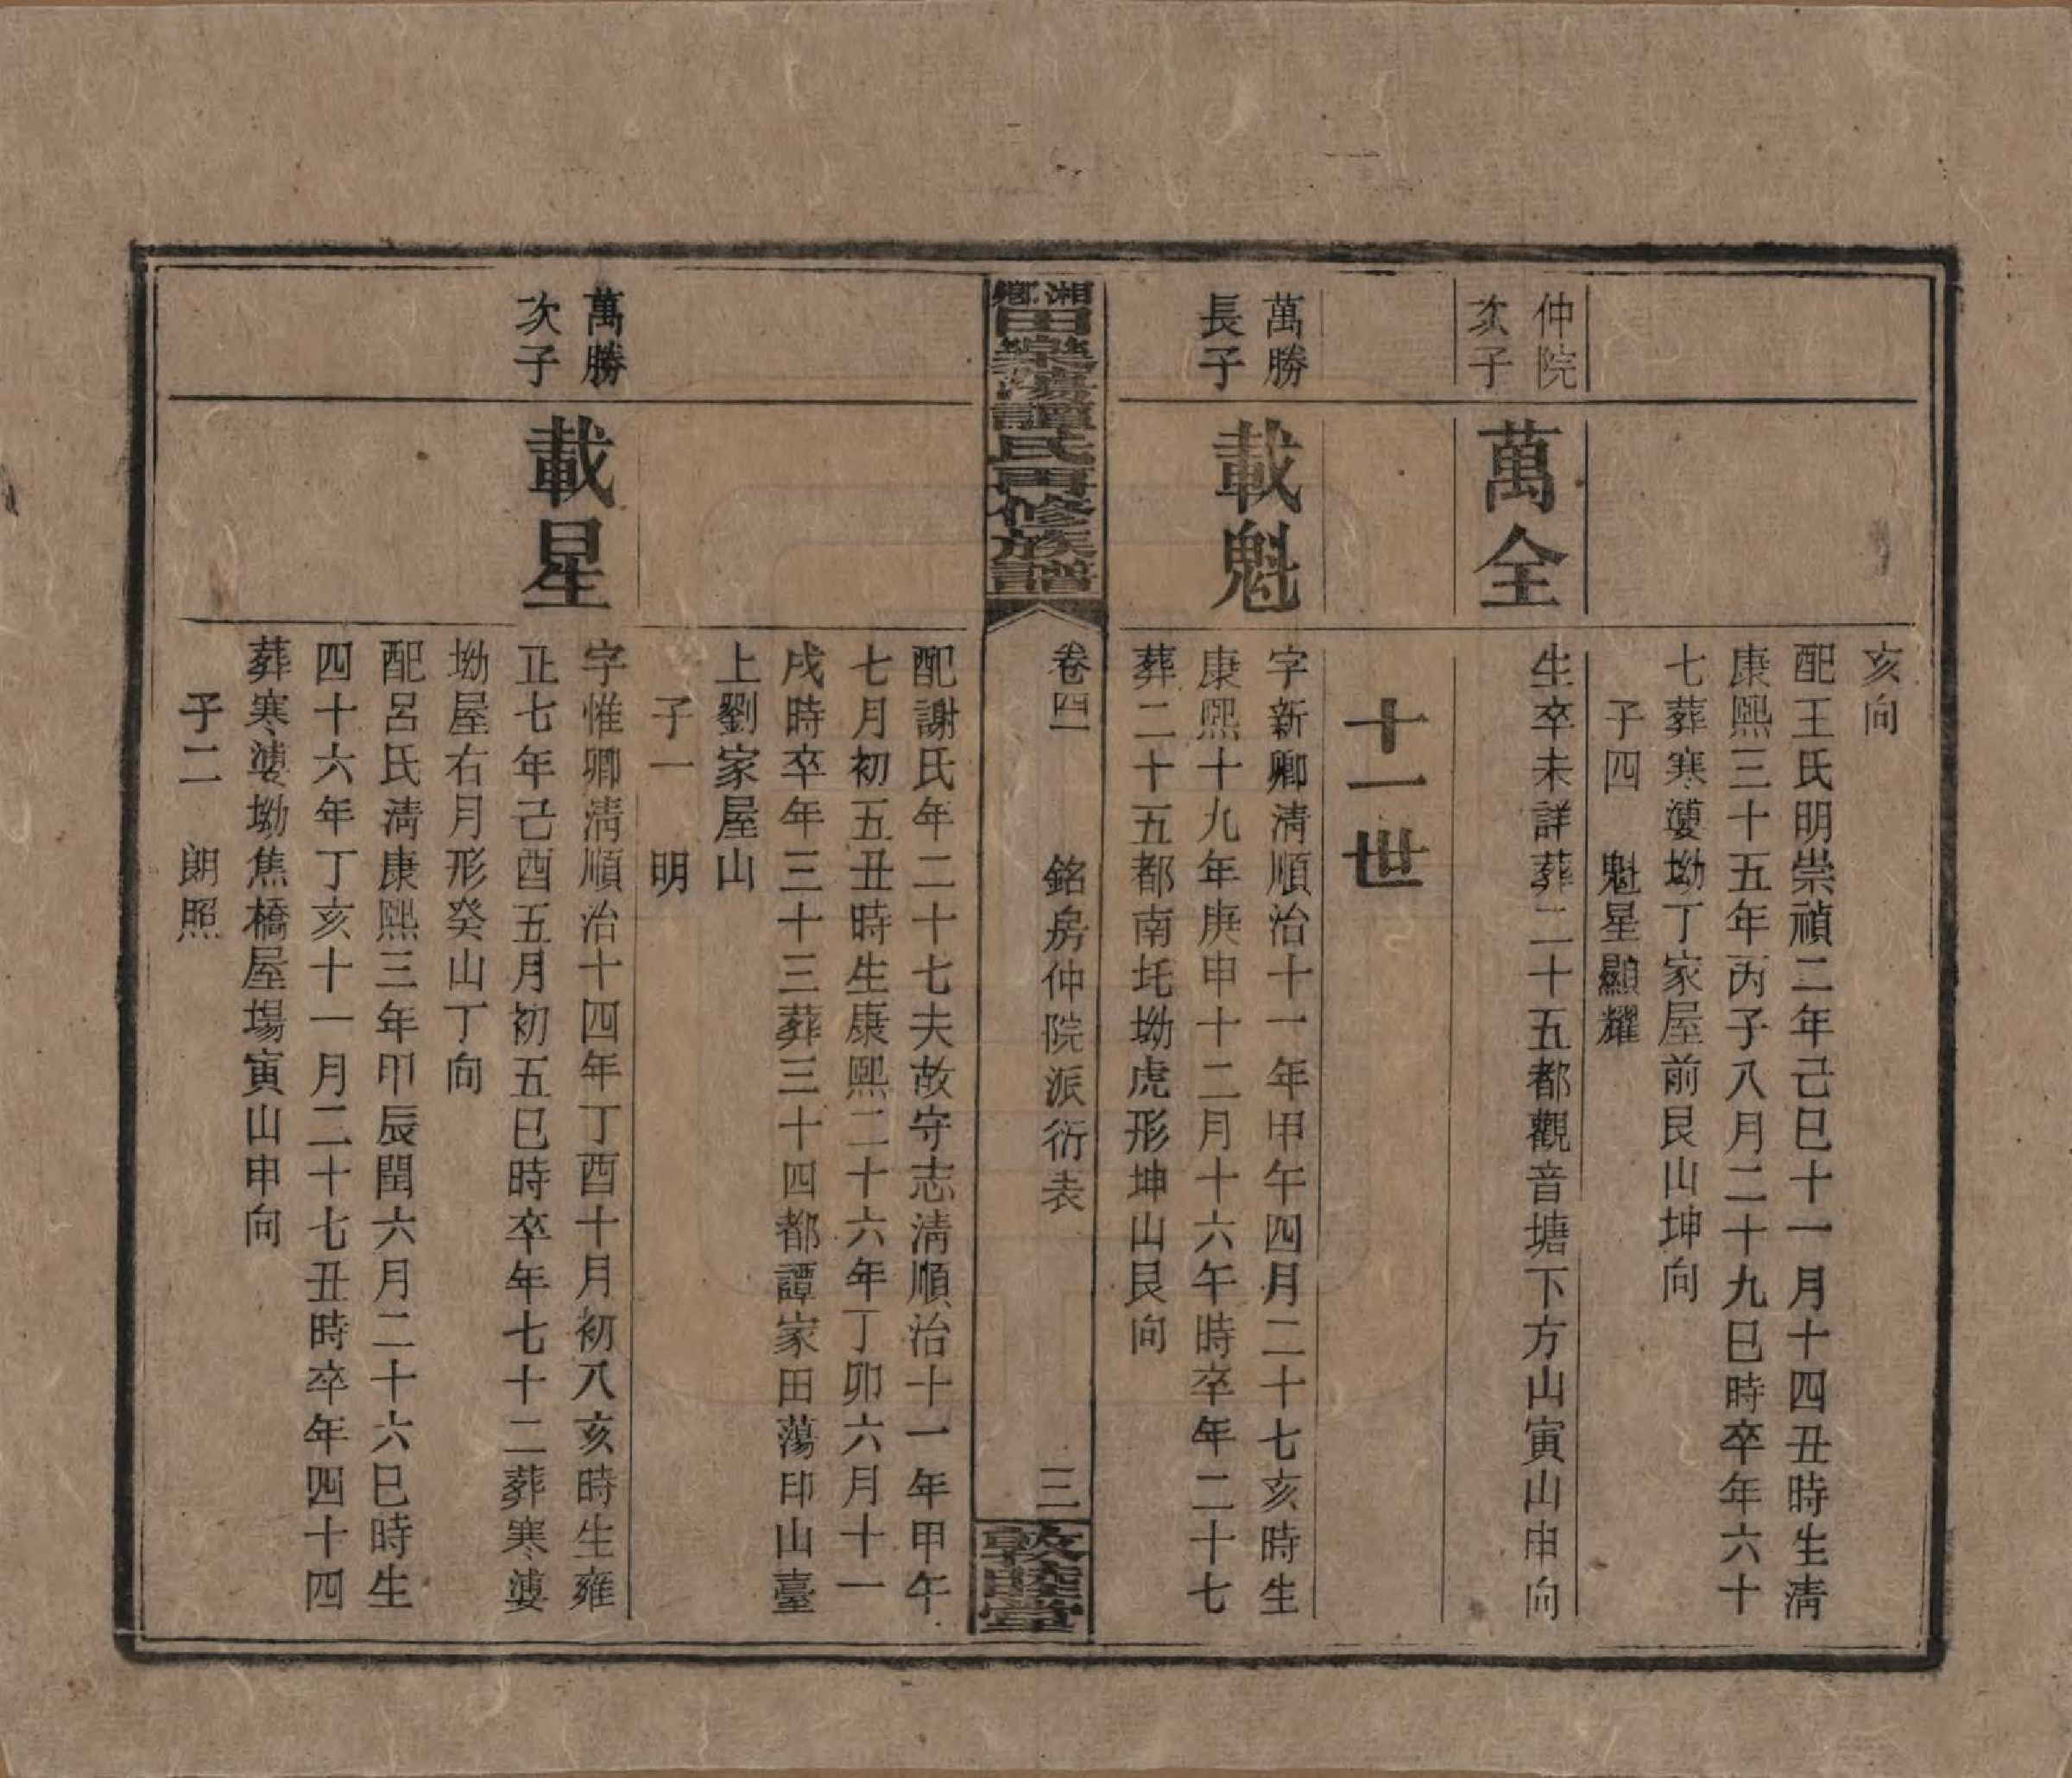 亥向
配王氏明崇禎二年己巳十一月十四丑時生淸
康熙三十五年丙子八月二十九巳時卒年六十
七葬寒婆坳丁家屋前艮山坤向
子四　魁星顯耀
仲院次子
萬全
生卒未詳葬二十五都觀音塘下方山寅山申向
十一世
萬勝長子
載魁
字新卿淸順治十一年甲午四月二十七亥時生
康熙十九年庚申十二月十六午時卒年二十七
葬二十五都南圫坳虎形坤山艮向
湘鄕田樂潭氏再修族譜
卷四　銘房仲院派衍表　三
敦睦堂
配謝氏年二十七夫故守志淸順治十一年甲午
七月初五丑時生康熙二十六年丁卯六月十一
戌時卒年三十三葬三十四都譚家田蕩印山臺
上劉家屋山
子一　明
萬勝次子
載星
字惟卿淸順治十四年丁酉十月初八亥時生雍
正七年己酉五月初五巳時卒年七十二葬寒婆
坳屋右月形癸山丁向
配呂氏淸康熙三年甲辰閏六月二十六巳時生
四十六年丁亥十一月二十七丑時卒年四十四
葬寒婆坳焦橋屋場寅山申向
子二　朗照